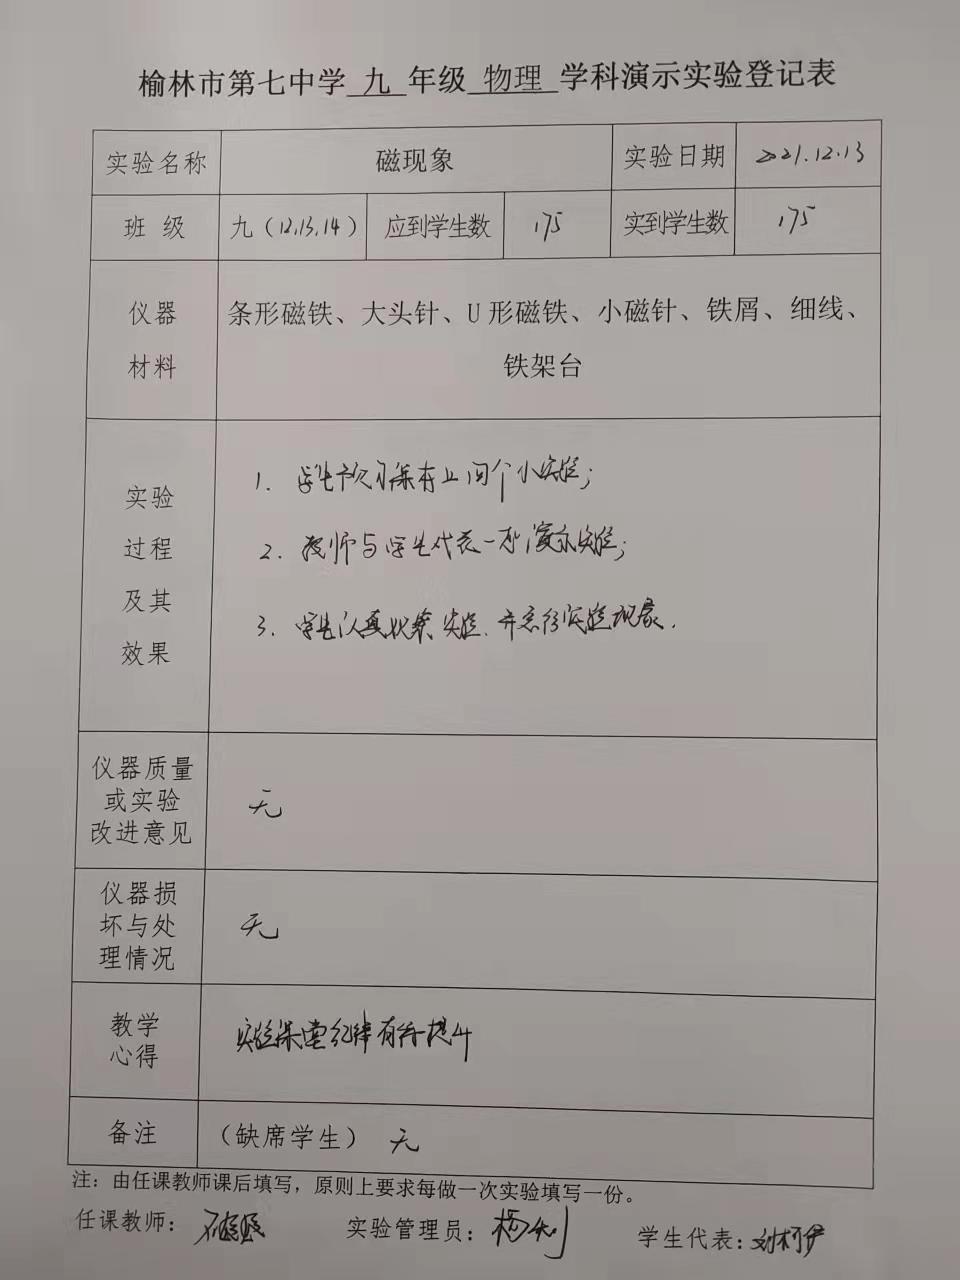 榆林市第七中学 九 年级 物理 学科演示实验登记表
实验名称 磁现象 实验日期 2021.12.13
班 级 九（12,13,14） 应到学生数 175 实到学生数 175
仪器
材料
条形磁铁、大头针、U形磁铁、小磁针、铁屑、细线、
铁架台
实验
过程
及其
效果
1. 学生预习课本上四个小实验;
2. 教师与学生代表一起演示实验;
3. 学生认真观察实验.并总结实验现象.
仪器质量
或实验
改进意见
无
仪器损
坏与处
理情况
无
教学
心得
实验课堂纪律有待提升
备注 （缺席学生） 无
注：由任课教师课后填写，原则上要求每做一次实验填写一份。
任课教师： 实验管理员： 学生代表：